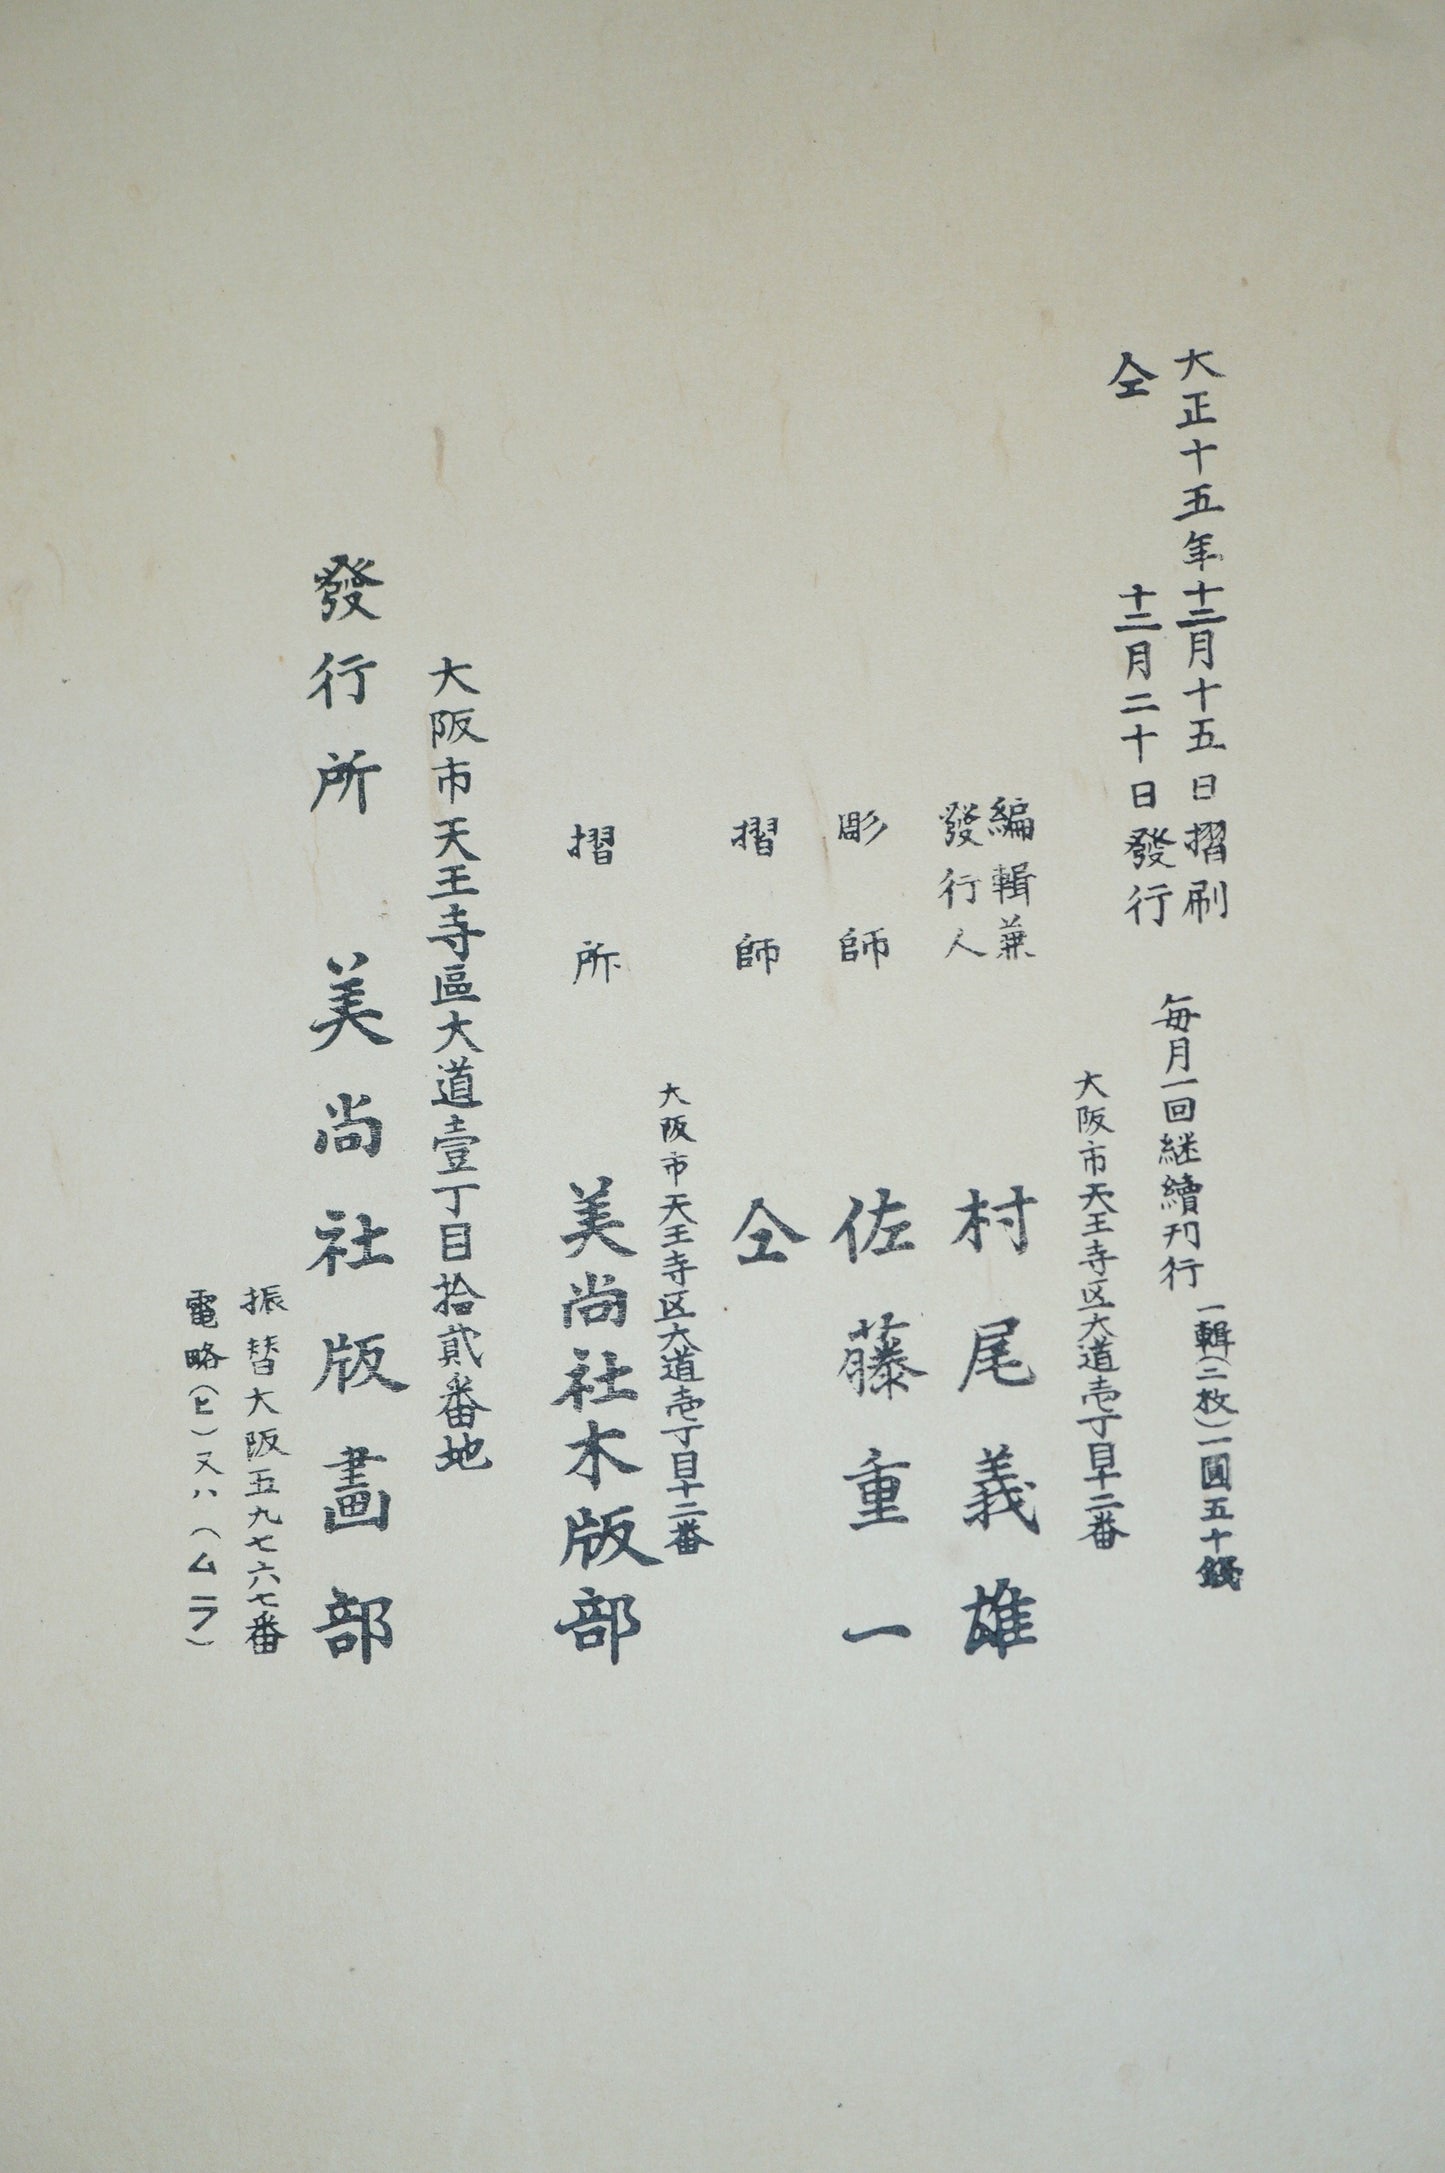 大正十五年十二月十五日摺刷
仝 十二月二十日發行
毎月一回継續刊行
一輯(二枚)一圓五十錢
大阪市天王寺区大道壱丁目十二番
編輯兼
發行人
村尾義雄
彫師 佐藤重一
摺師 仝
大阪市天王寺区大道壱丁目十二番
摺所 美尚社木版部
大阪市天王寺區大道壹丁目拾貳番地
發行所 美尚社版畫部
振替大阪五九七六七番
電略(ヒ)又ハ(ムラ)